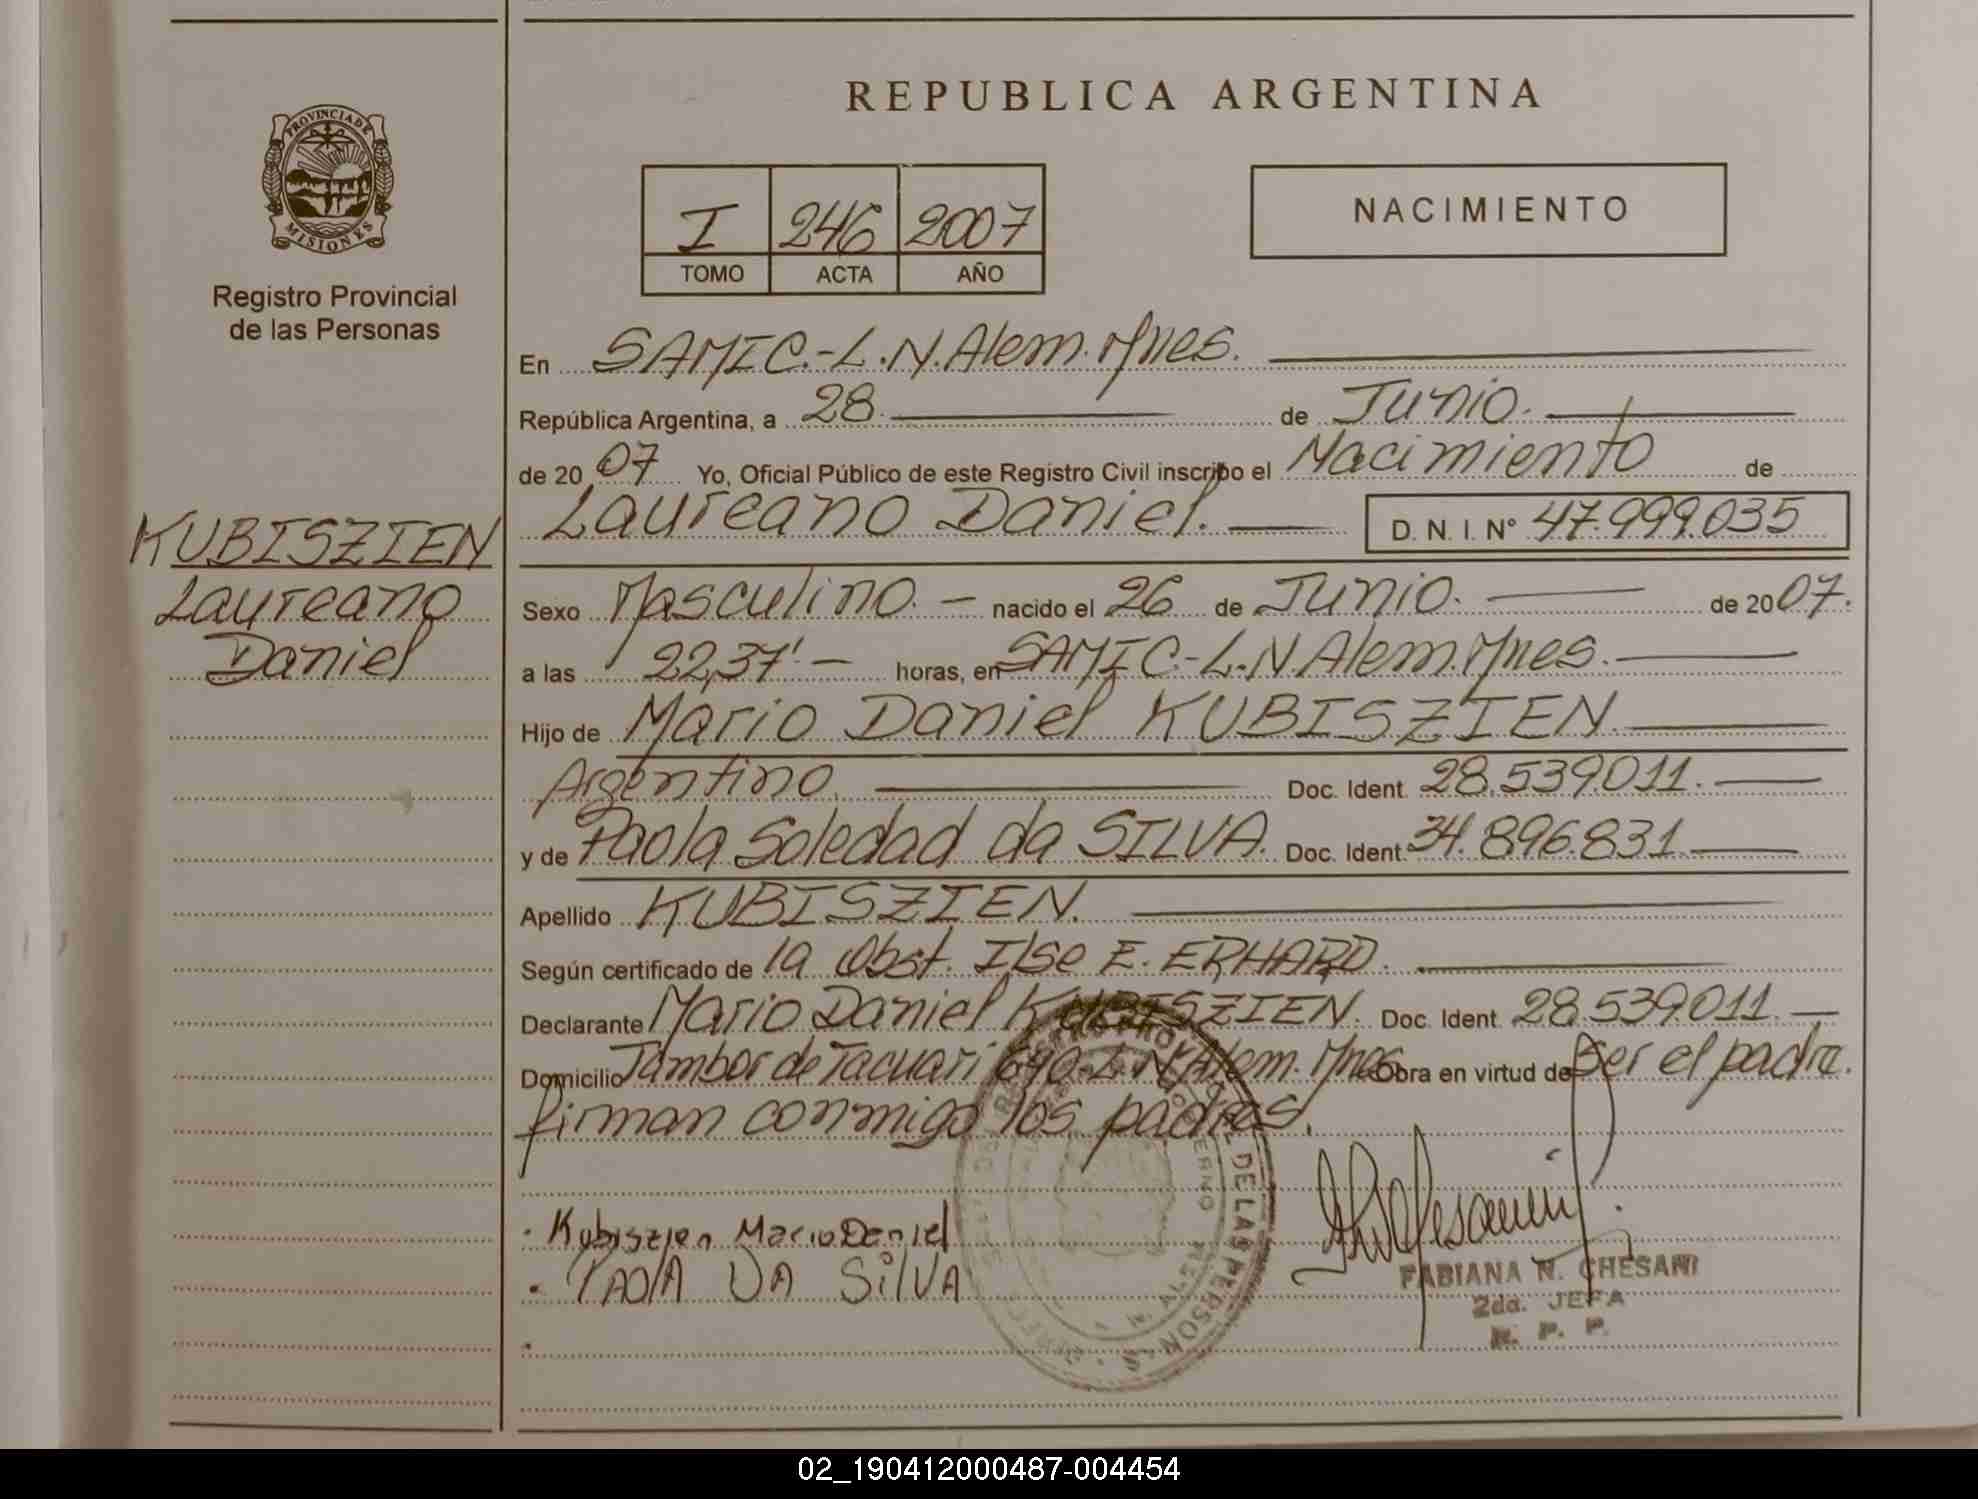 REPUBLICA ARGENTINA
PROVINCIA DE
MISIONES
Registro Provincial
de las Personas
I 246 2007
TOMO ACTA AÑO
NACIMIENTO
En SAMIC.-L.N.Alem.Mnes.
República Argentina, a 28. de Junio.
de 20 07 Yo, Oficial Público de este Registro Civil inscribo el Nacimiento de
Laureano Daniel. D. N. I. N° 47.999.035
KUBISZIEN
Laureano
Daniel
Sexo Masculino. nacido el 26 de Junio. de 20 07.
a las 22,37' horas, en SAMIC.-L.N.Alem.Mnes.
Hijo de Mario Daniel KUBISZIEN.
Argentino. Doc. Ident. 28.539.011.
y de Paola Soledad da SILVA. Doc. Ident. 34.896.831.
Apellido KUBISZIEN.
Según certificado de la Obst. Ilse E. ERHARD.
Declarante Mario Daniel KUBISZIEN. Doc. Ident. 28.539.011.
Domicilio Tambor de Tacuari 690-L.N.Alem.Mnes Obra en virtud de Ser el padre.
firman conmigo los padres.
Kubiszien Mario Daniel
PAOlA DA SilVA
DE LAS PERSONAS
FABIANA N. CHESANI
2da. JEFA
R. P. P.
02_190412000487-004454